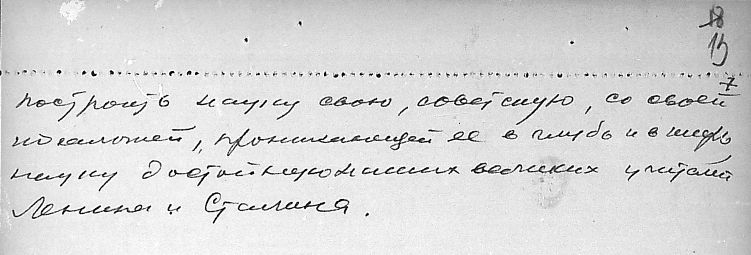 18
15
7
построить науку свою, советскую, со своей
идеологией, проникающей ее в глубь и в ширь
науку достойную наших великих учителей
Ленина и Сталина.